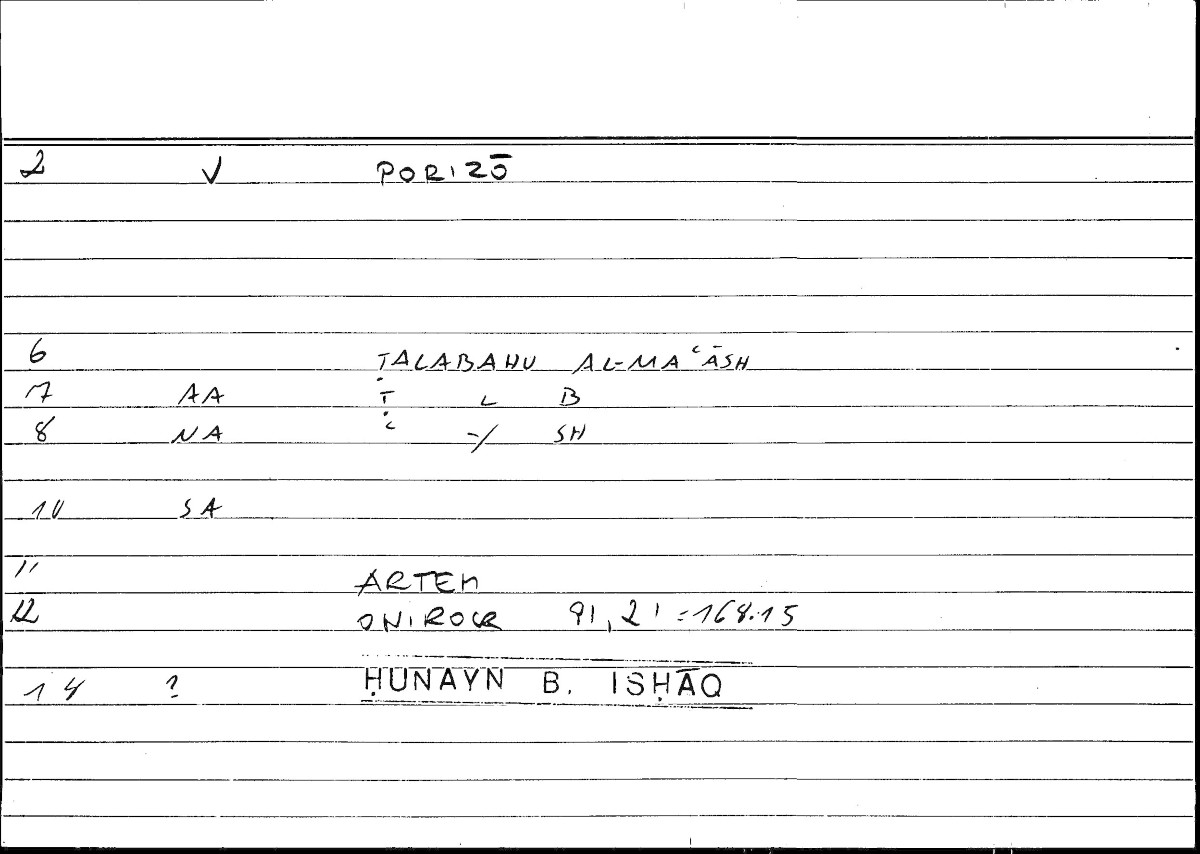 2 V PORIZŌ
6 ṬALABAHU AL-MAʿĀSH
7 AA Ṭ L B
8 NA ʿ -/ SH
10 SA
11 ARTEM
12 ONIROCR 91,21=168.15
14 ? ḤUNAYN B. ISḤĀQ